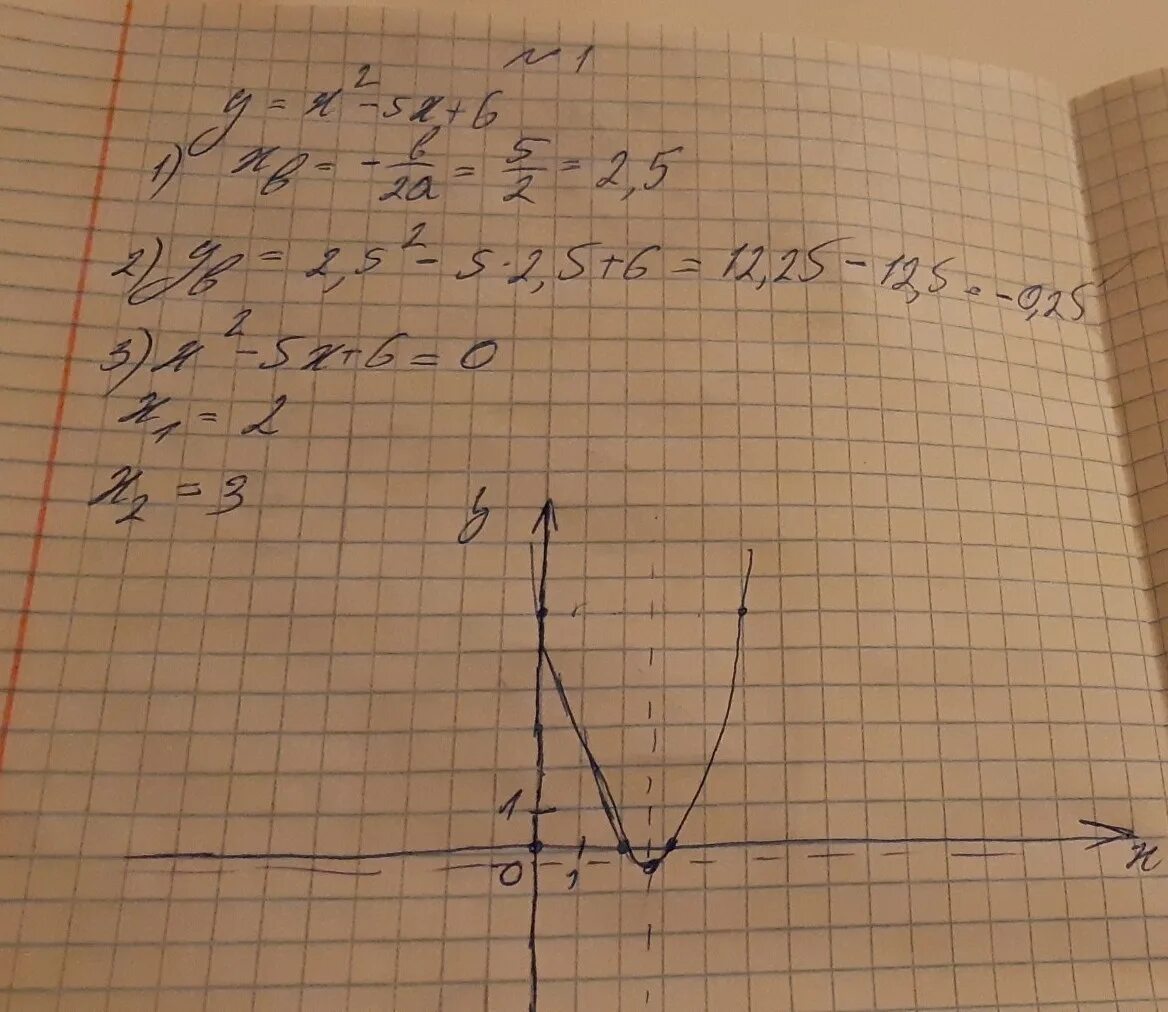 №1
y = x² - 5x + 6
1) xв = -в/2a = 5/2 = 2,5
2) yв = 2,5² - 5·2,5 + 6 = 12,25 - 12,5 = -0,25
3) x² - 5x + 6 = 0
x₁ = 2
x₂ = 3
y
1
0 1 x